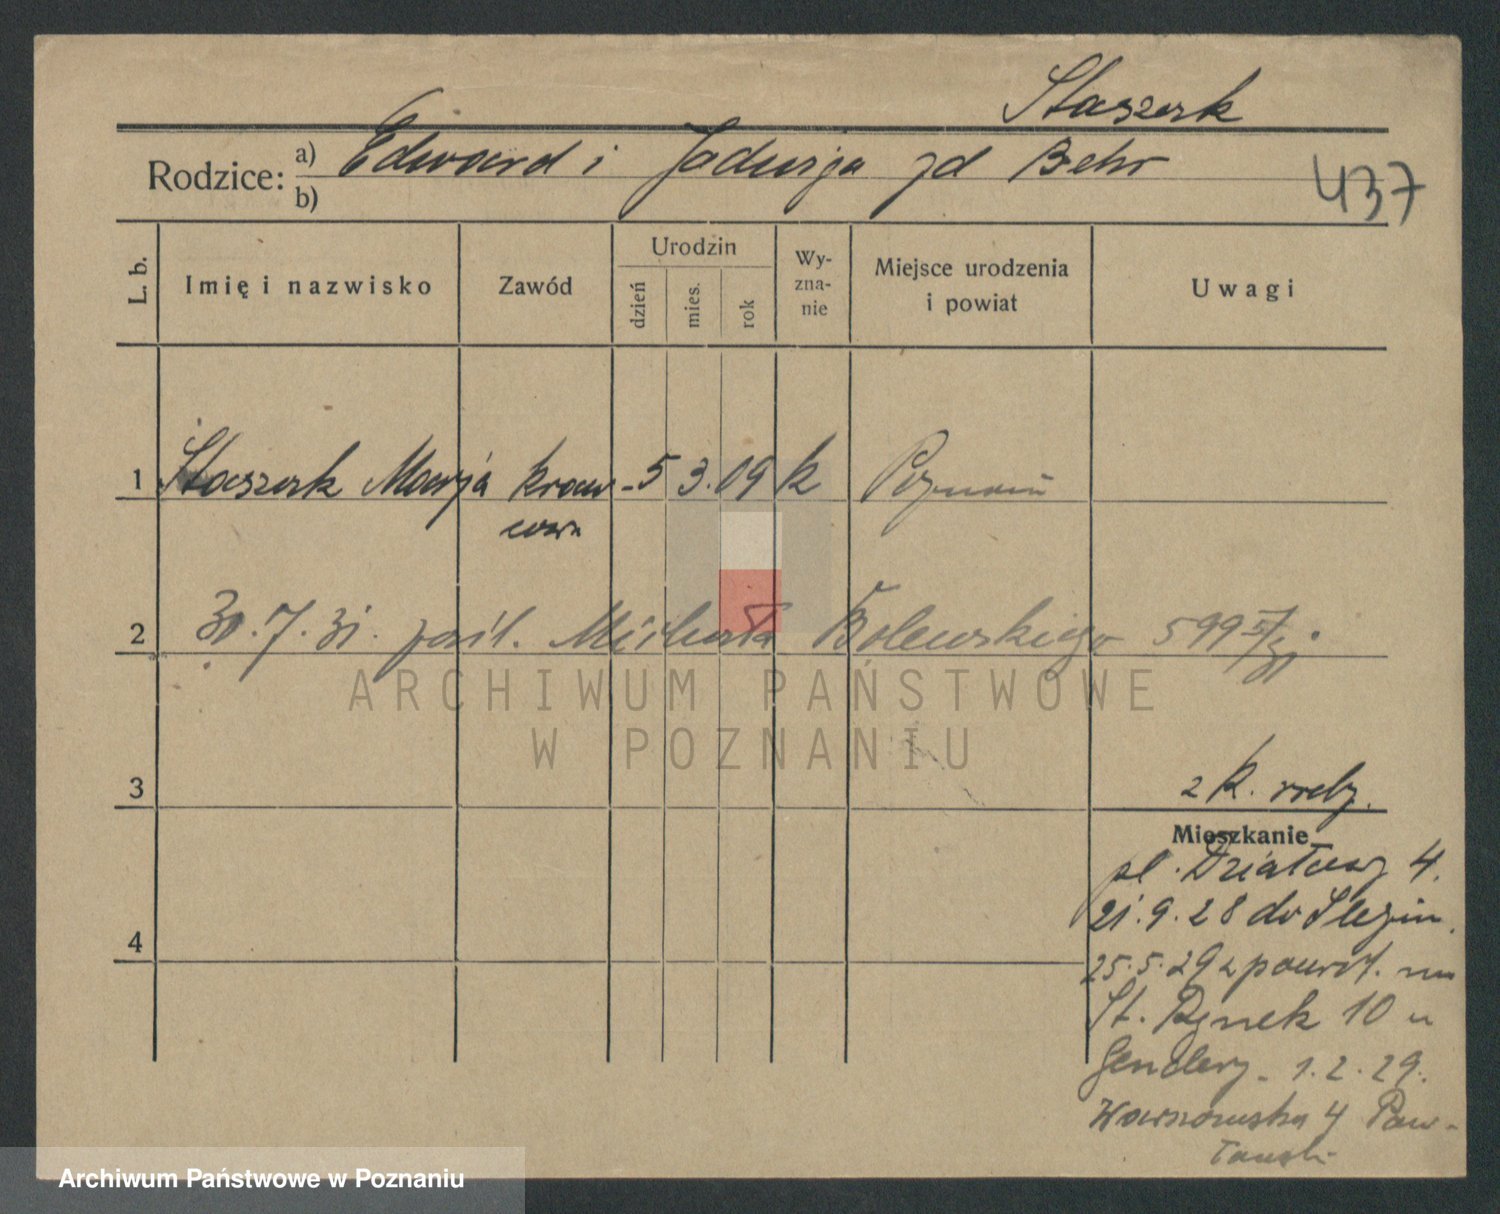 Staszak
Rodzice: a) Edward i Jadwiga zd Behr
b)
437
L. b. Imię i nazwisko Zawód Urodzin dzień mies. rok Wy-zna-nie Miejsce urodzenia i powiat Uwagi
1 Staszak Marja kraw-cowa 5 3. 09 k Poznań
2 30. 7. 31. pośl. Michała Bolewskiego 599
ARCHIWUM PAŃSTWOWE
W POZNANIU
3
z k.
Mieszkanie
pl. Działowy 4.
21. 9. 28 do
25. 5. 29 z powrót. na
St. Rynek 10 u
1. 2. 29.
4
Archiwum Państwowe w Poznaniu